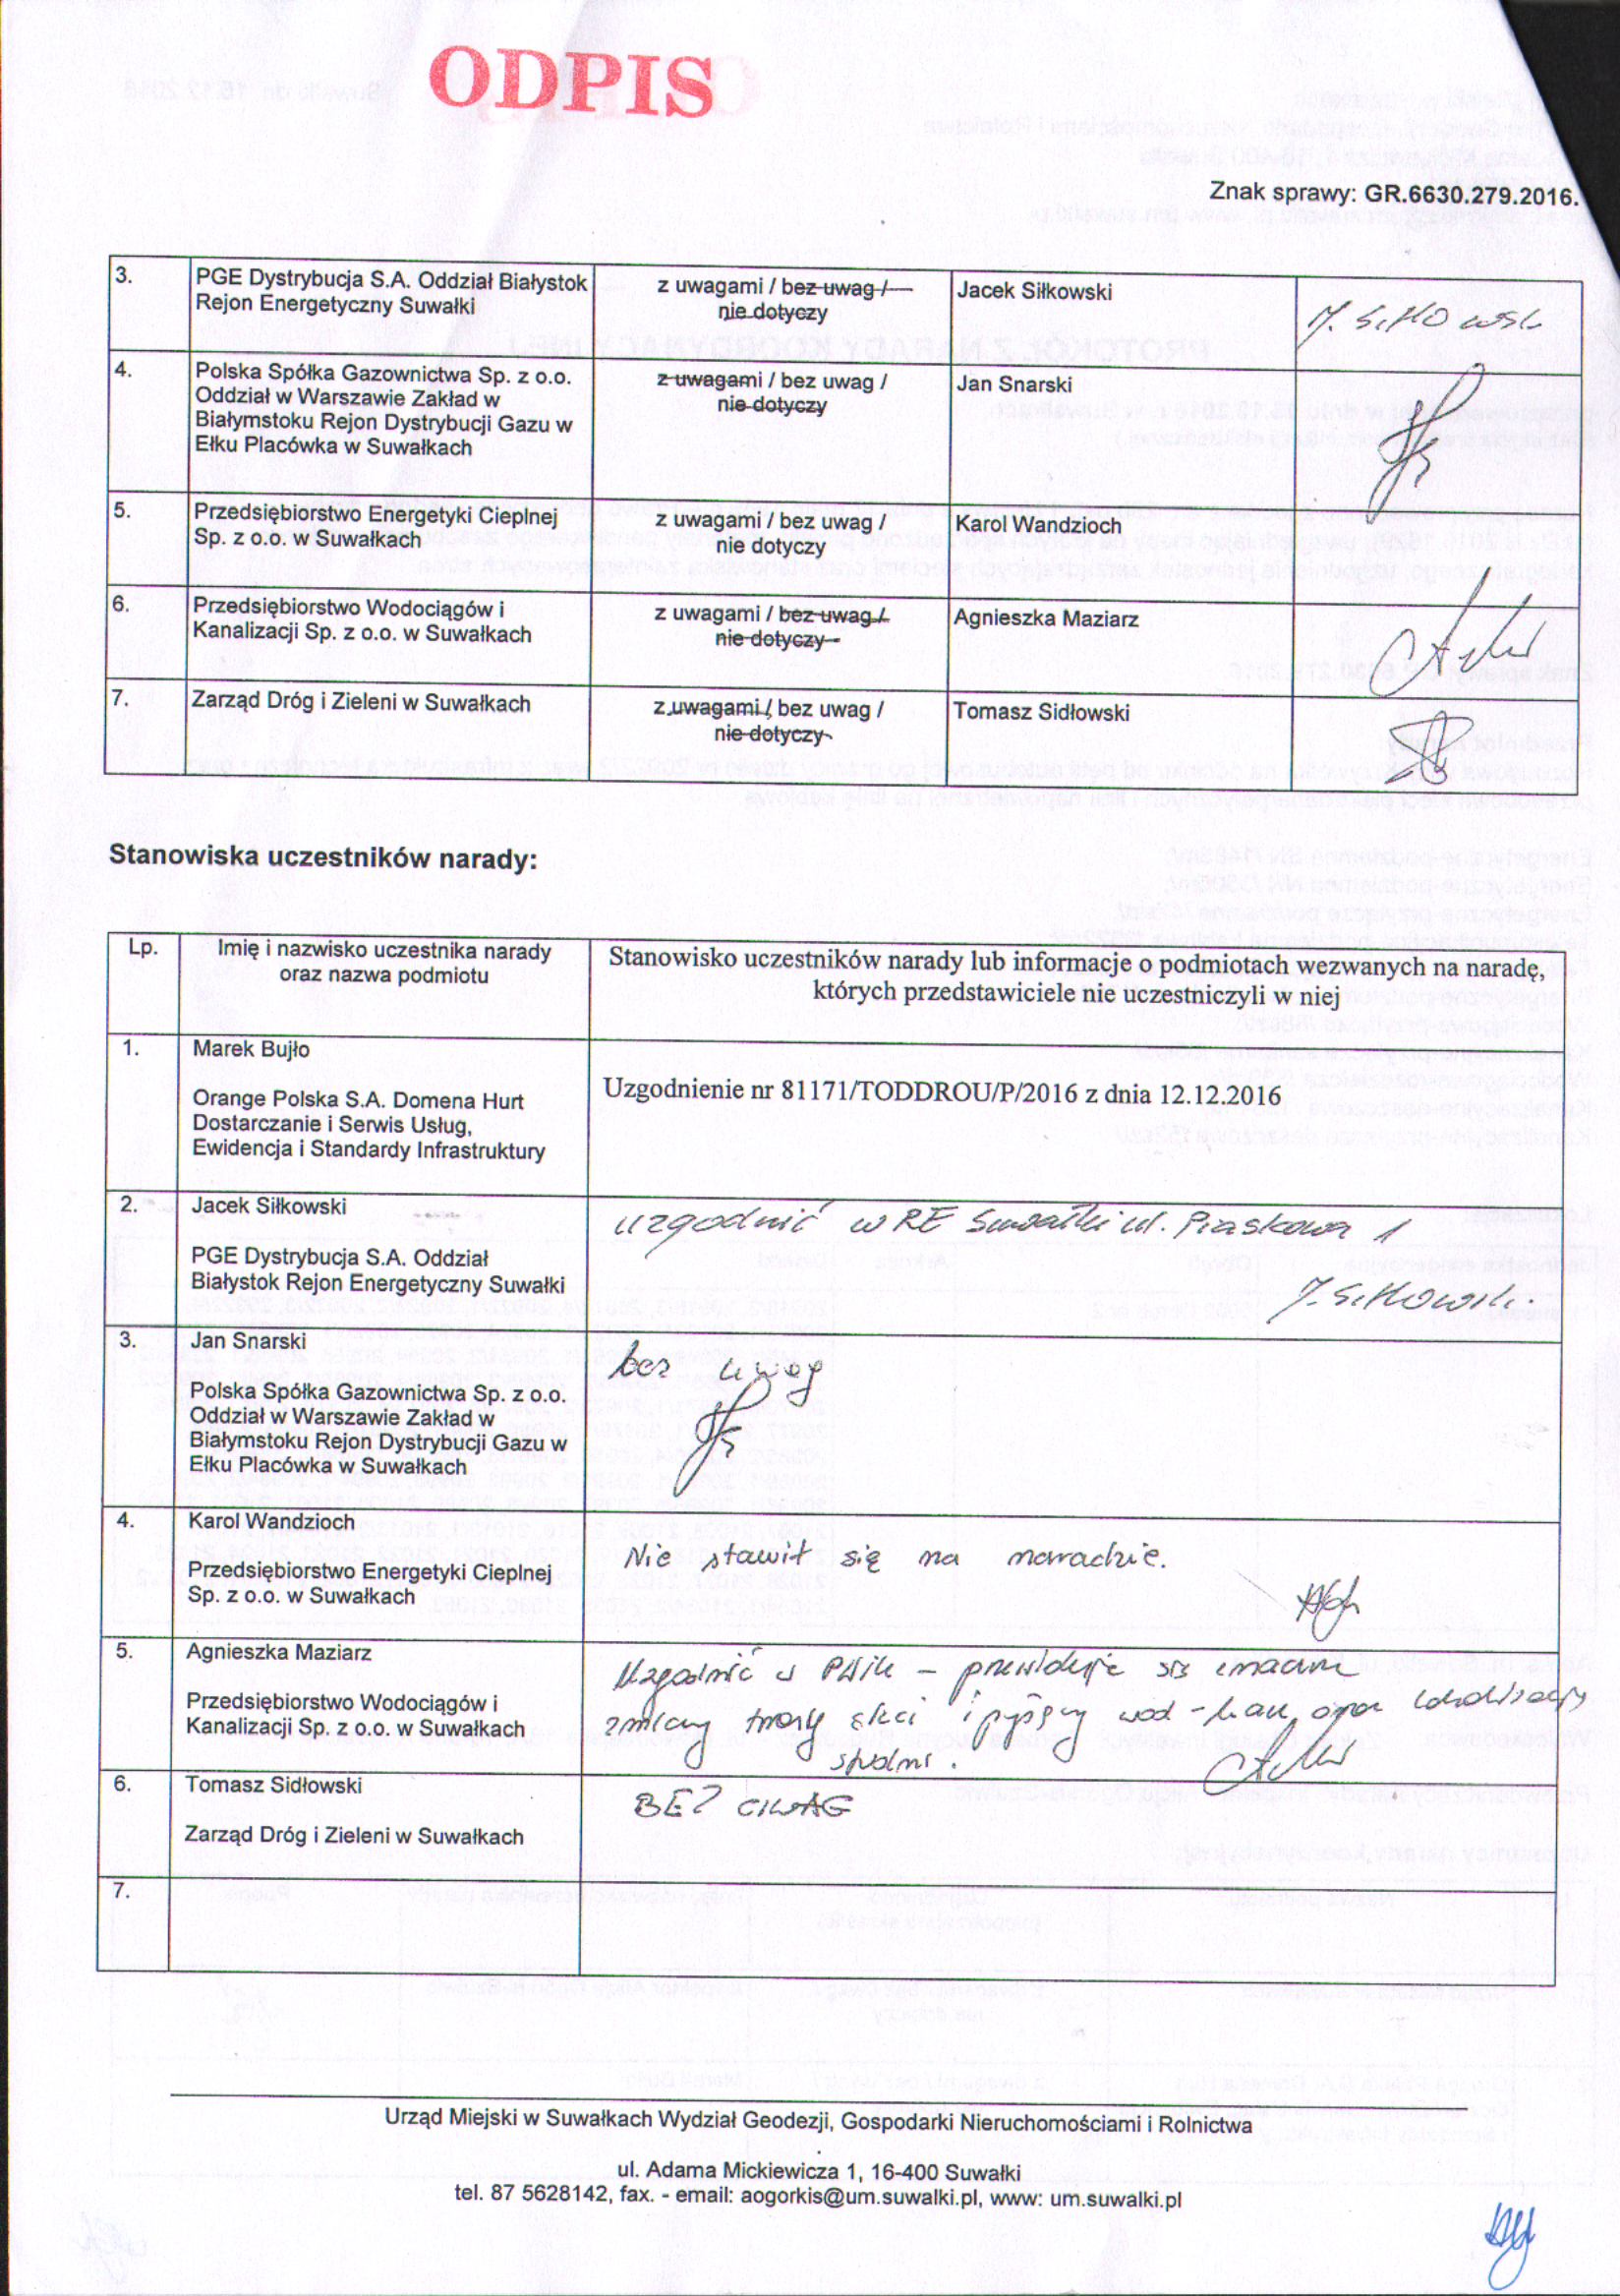 ODPIS
Znak sprawy: GR.6630.279.2016.
3.
PGE Dystrybucja S.A. Oddział Białystok
Rejon Energetyczny Suwałki
z uwagami / bez uwag /
nie dotyczy
Jacek Siłkowski
J. Siłkowski
4.
Polska Spółka Gazownictwa Sp. z o.o.
Oddział w Warszawie Zakład w
Białymstoku Rejon Dystrybucji Gazu w
Ełku Placówka w Suwałkach
z uwagami / bez uwag /
nie dotyczy
Jan Snarski
5.
Przedsiębiorstwo Energetyki Cieplnej
Sp. z o.o. w Suwałkach
z uwagami / bez uwag /
nie dotyczy
Karol Wandzioch
6.
Przedsiębiorstwo Wodociągów i
Kanalizacji Sp. z o.o. w Suwałkach
z uwagami / bez uwag /
nie dotyczy
Agnieszka Maziarz
7.
Zarząd Dróg i Zieleni w Suwałkach
z uwagami / bez uwag /
nie dotyczy
Tomasz Sidłowski
Stanowiska uczestników narady:
Lp.
Imię i nazwisko uczestnika narady
oraz nazwa podmiotu
Stanowisko uczestników narady lub informacje o podmiotach wezwanych na naradę,
których przedstawiciele nie uczestniczyli w niej
1.
Marek Bujło
Orange Polska S.A. Domena Hurt
Dostarczanie i Serwis Usług,
Ewidencja i Standardy Infrastruktury
Uzgodnienie nr 81171/TODDROU/P/2016 z dnia 12.12.2016
2.
Jacek Siłkowski
PGE Dystrybucja S.A. Oddział
Białystok Rejon Energetyczny Suwałki
uzgodnić w RE Suwałki ul. Piaskowa 1
J. Siłkowski
3.
Jan Snarski
Polska Spółka Gazownictwa Sp. z o.o.
Oddział w Warszawie Zakład w
Białymstoku Rejon Dystrybucji Gazu w
Ełku Placówka w Suwałkach
bez uwag
4.
Karol Wandzioch
Przedsiębiorstwo Energetyki Cieplnej
Sp. z o.o. w Suwałkach
Nie stawił się na naradzie.
5.
Agnieszka Maziarz
Przedsiębiorstwo Wodociągów i
Kanalizacji Sp. z o.o. w Suwałkach
Uzgodnić w PWiK – przewiduje się znaczne
zmiany trasy sieci i przyłączy wod-kan, oraz lokalizacji
studni.
6.
Tomasz Sidłowski
Zarząd Dróg i Zieleni w Suwałkach
BEZ UWAG
7.
Urząd Miejski w Suwałkach Wydział Geodezji, Gospodarki Nieruchomościami i Rolnictwa
ul. Adama Mickiewicza 1, 16-400 Suwałki
tel. 87 5628142, fax. - email: aogorkis@um.suwalki.pl, www: um.suwalki.pl